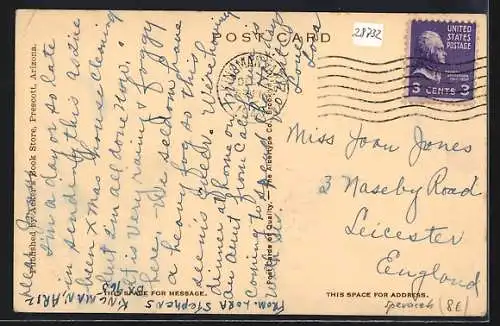 POST CARD
28732
UNITED
STATES
POSTAGE
3 CENTS 3
Published by Acker's Book Store, Prescott, Arizona.
Post Cards of Quality. — The Albertype Co.,
Dear Joan,
I'm a day or so late
in sending this as I've
been Xmas house cleaning
but I'm all done now.
It is very rainy & foggy
here. — We seldom have
a heavy fog so this
seems weird. We're having
dinner at home on Xmas
an aunt from Calif. is
coming to spend the holidays
with us.
Love
Lora
From: LORA STEPHENS
BX 763
KINGMAN, ARIZ
Miss Joan Jones
3 Naseby Road
Leicester
England
THIS SPACE FOR MESSAGE.
THIS SPACE FOR ADDRESS.
(8E)